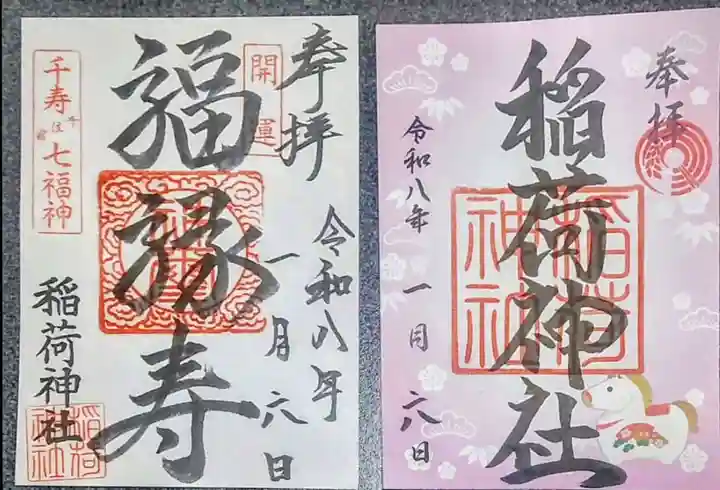 奉拝
開運
福縁寿
令和八年
一月六日
千寿
七福神
稲荷神社
稲荷
神社
奉拝
稲荷神社
稲荷
神社
令和八年
一月六日